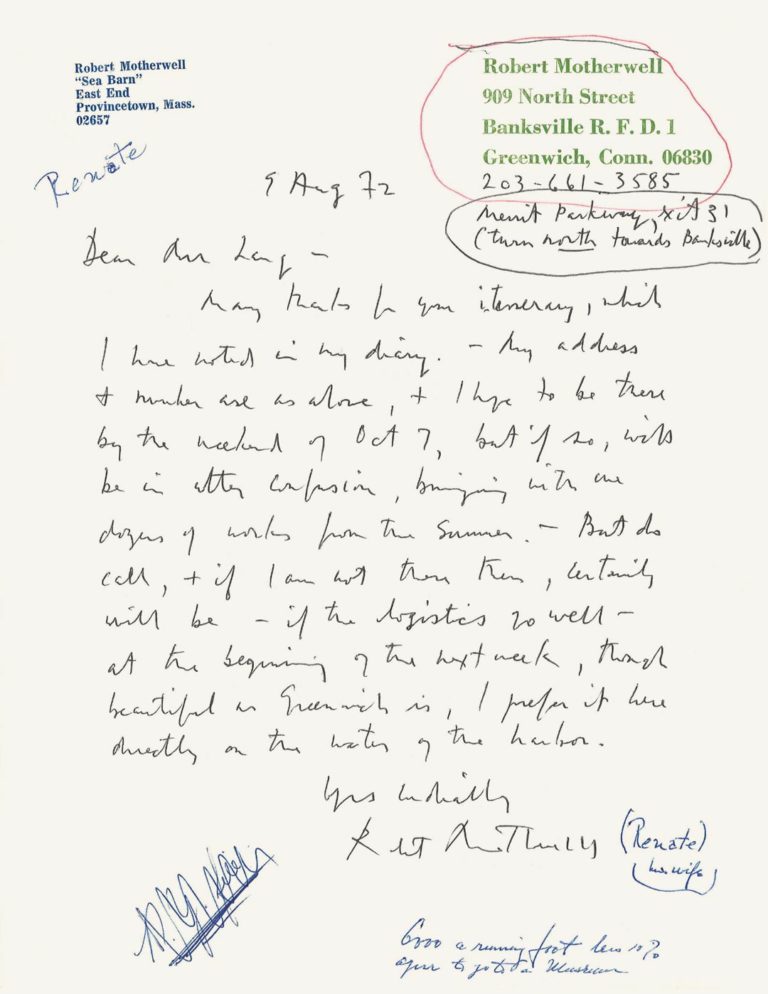 Robert Motherwell
"Sea Barn"
East End
Provincetown, Mass.
02657
Robert Motherwell
909 North Street
Banksville R. F. D. 1
Greenwich, Conn. 06830
203-661-3585
Merrit Parkway, xit 31
(turn north towards Banksville)
Renate
9 Aug 72
Dear Mr Lang –
Many thanks for your itinerary, which
I have noted in my diary. – My address
+ number are as above, + I hope to be there
by the weekend of Oct 7, but if so, will
be in utter confusion, bringing with me
dozens of works from the summer. – But do
call, + if I am not there then, certainly
will be – if the logistics go well –
at the beginning of the next week, though
beautiful as Greenwich is, I prefer it here
directly on the water of the harbor.
Yrs cordially
Robert Motherwell
(Renate)
his wife
6000 a running foot less 10%
to a Museum